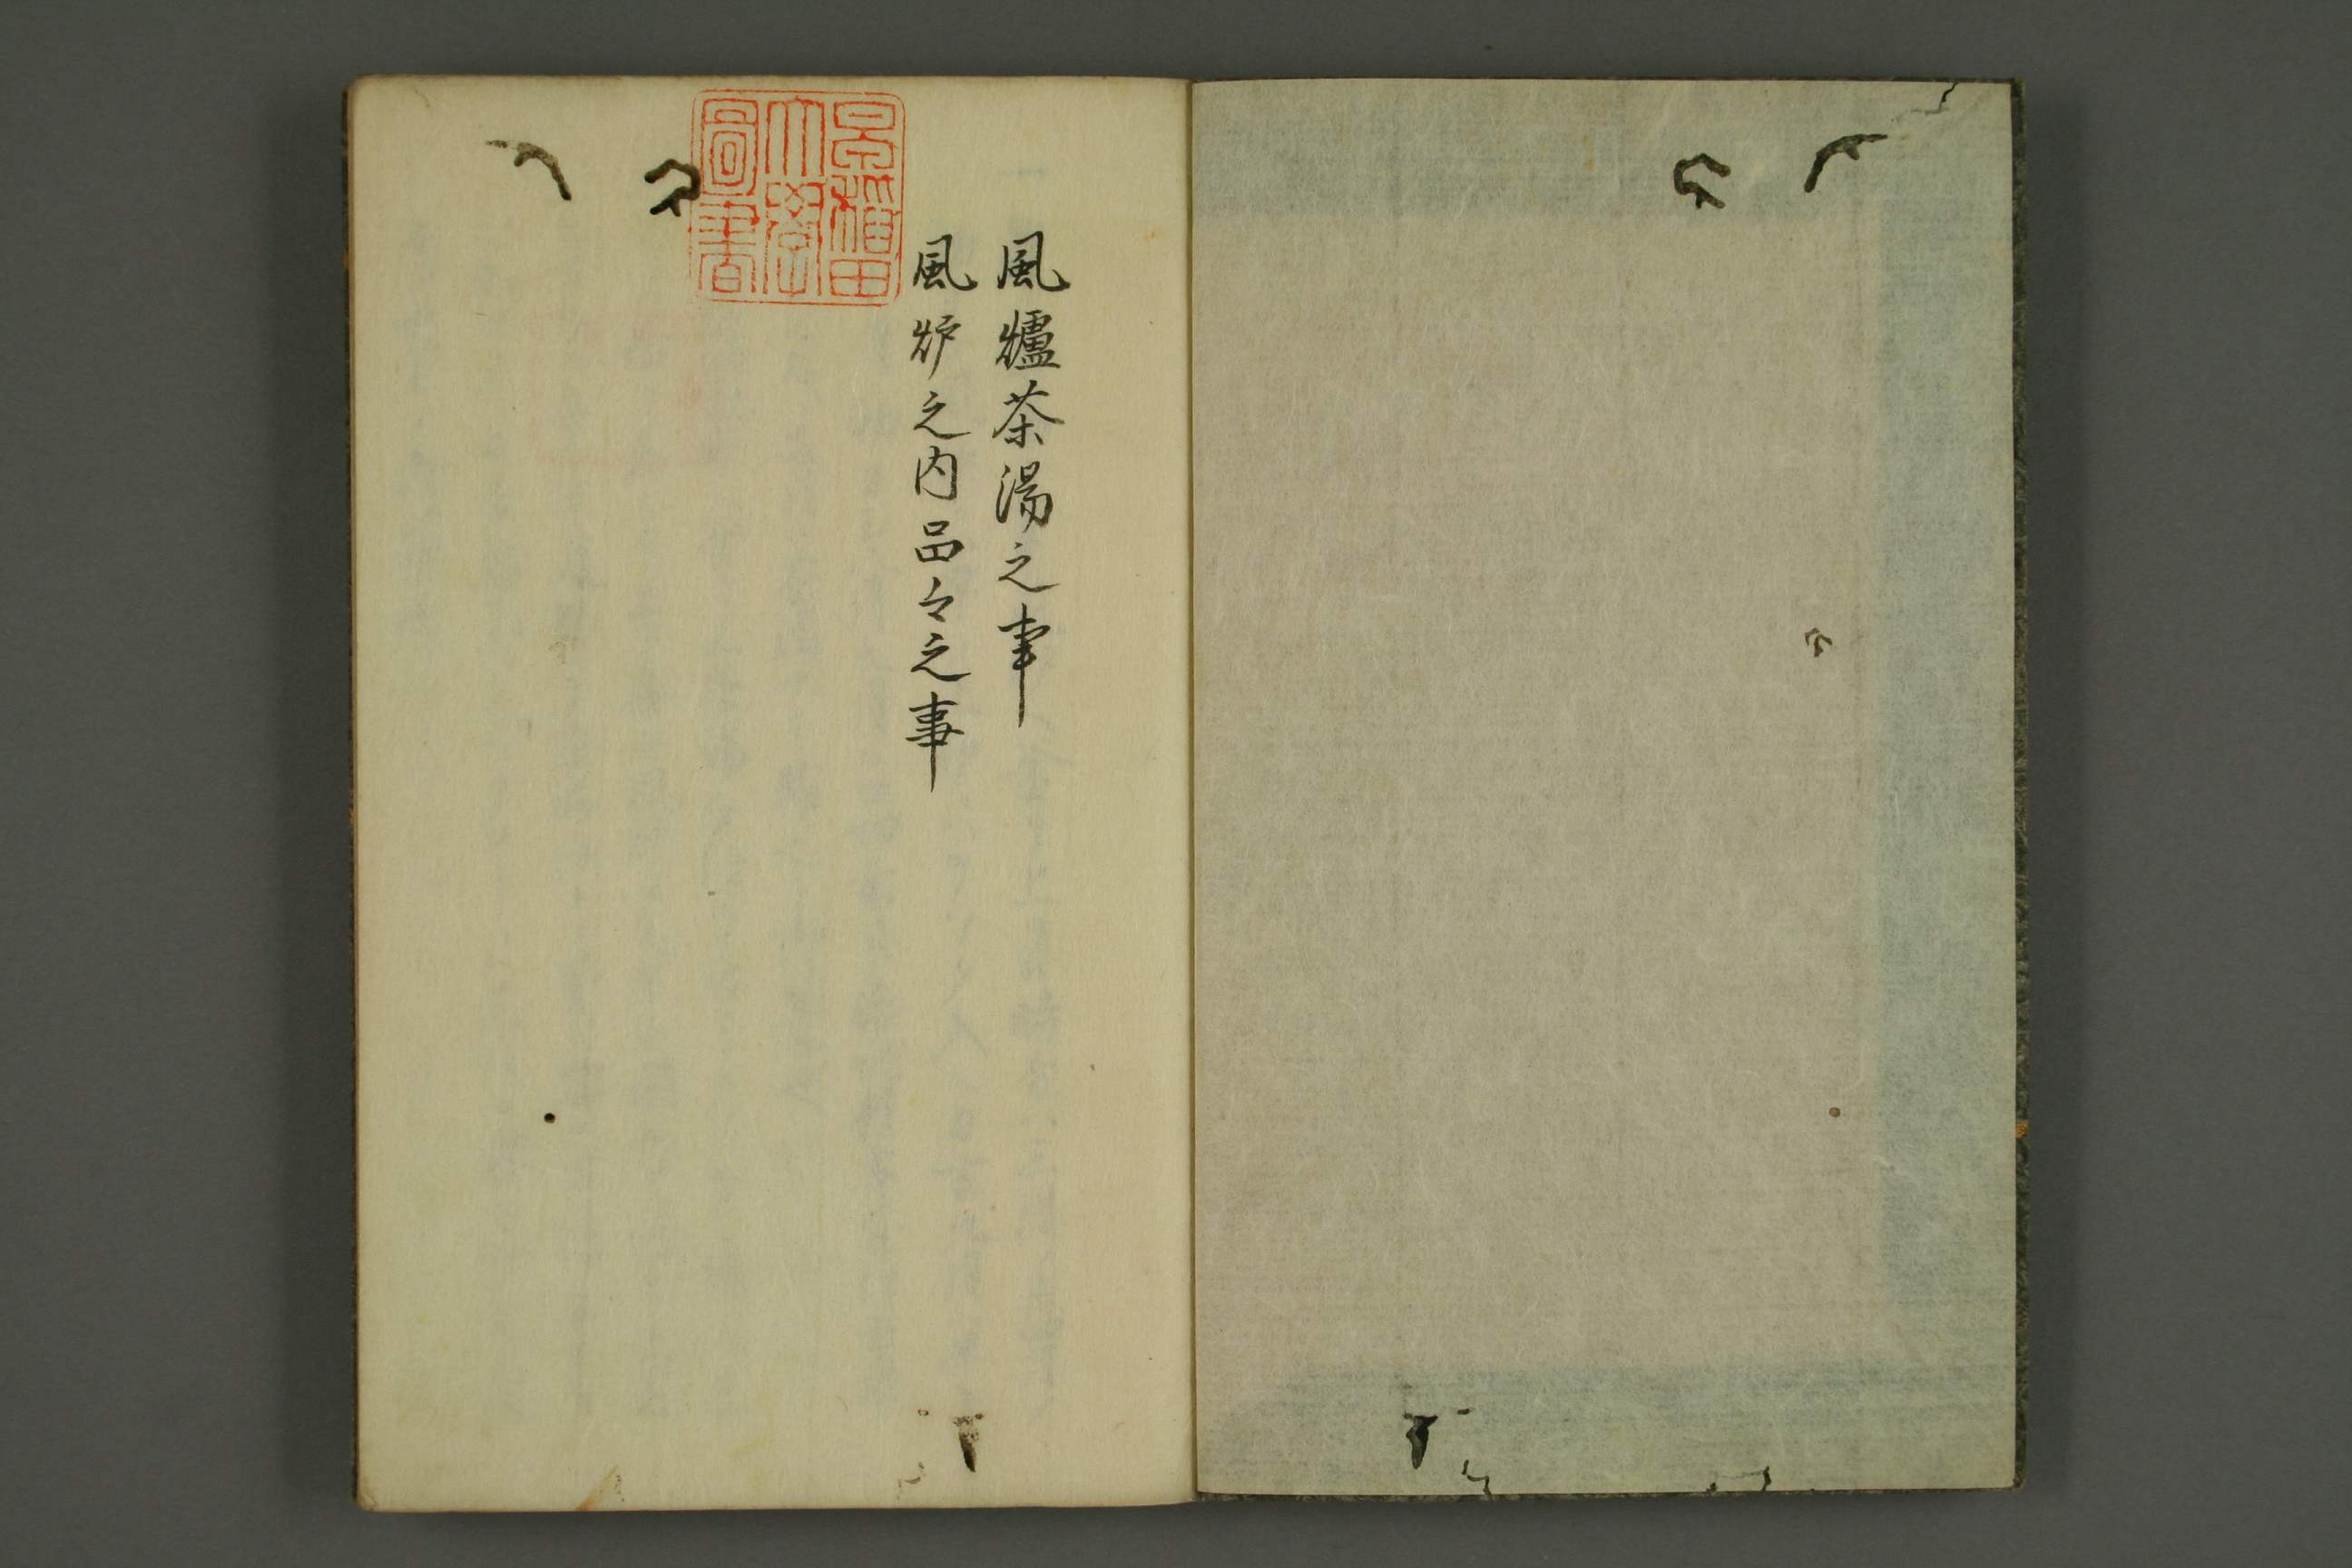 風爐茶湯之事
風炉之内品々之事
早稲田
大學
圖書